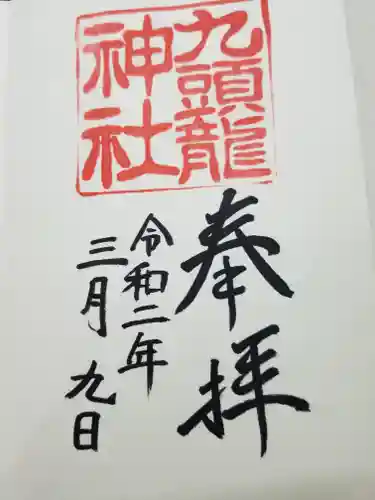 九頭龍
神社
奉拝
令和二年
三月九日